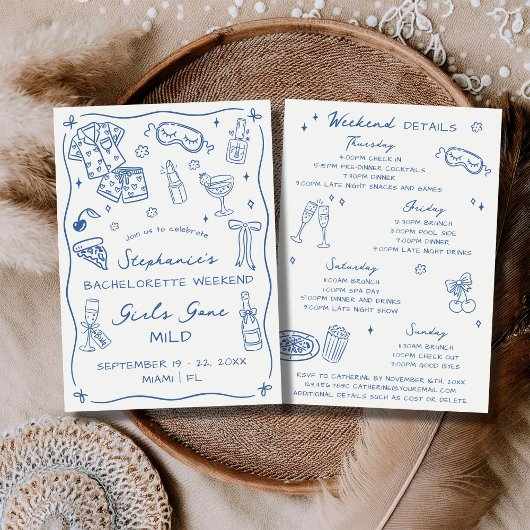 join us to celebrate
Stephanie's
BACHELORETTE WEEKEND
Girls Gone
MILD
SEPTEMBER 19 - 22, 20XX
MIAMI | FL
Weekend DETAILS
Thursday
4:00PM CHECK IN
5:15PM PRE-DINNER COCKTAILS
7:30PM DINNER
9:00PM LATE NIGHT SNACKS AND GAMES
Friday
12:30PM BRUNCH
3:00PM POOL SIDE
7:00PM DINNER
9:00PM LATE NIGHT DRINKS
Saturday
11:00AM BRUNCH
1:00PM SPA DAY
5:00PM DINNER AND DRINKS
9:00PM LATE NIGHT SHOW
Sunday
11:30AM BRUNCH
1:00PM CHECK OUT
3:00PM GOOD BYES
RSVP TO CATHERINE BY NOVEMBER 16TH, 20XX
123.456.7890 CATHERINE@YOUREMAIL.COM
ADDITIONAL DETAILS SUCH AS COST OR DELETE